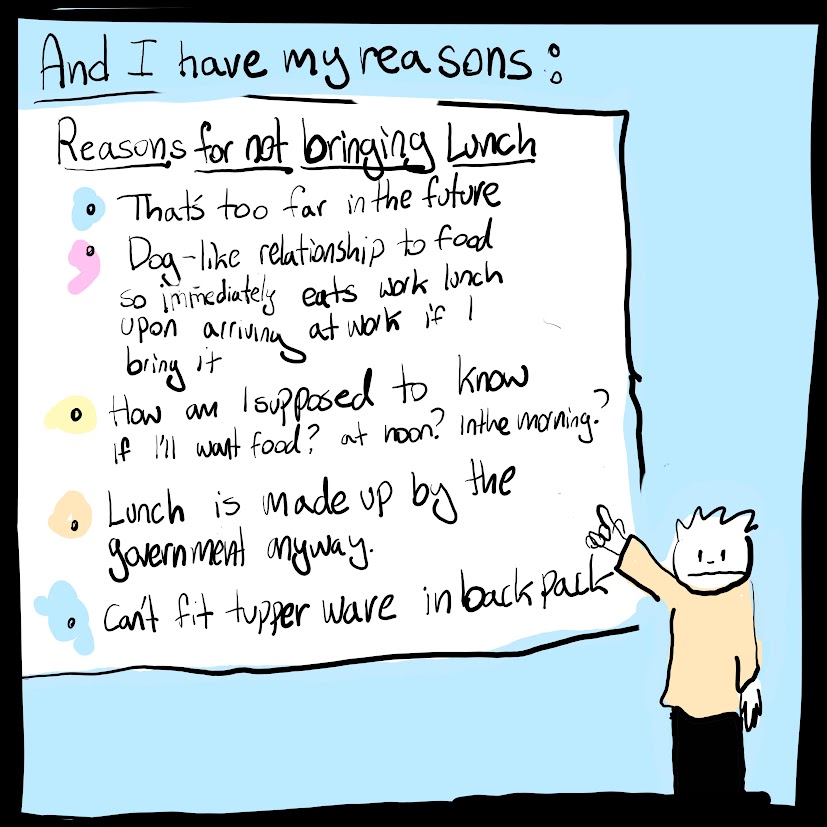 And I have my reasons:
Reasons for not bringing Lunch
That's too far in the future
Dog-like relationship to food
so immediately eats work lunch
upon arriving at work if I
bring it
How am I supposed to know
if I'll want food? at noon? In the morning?
Lunch is made up by the
government anyway.
Can't fit tupper ware in backpack